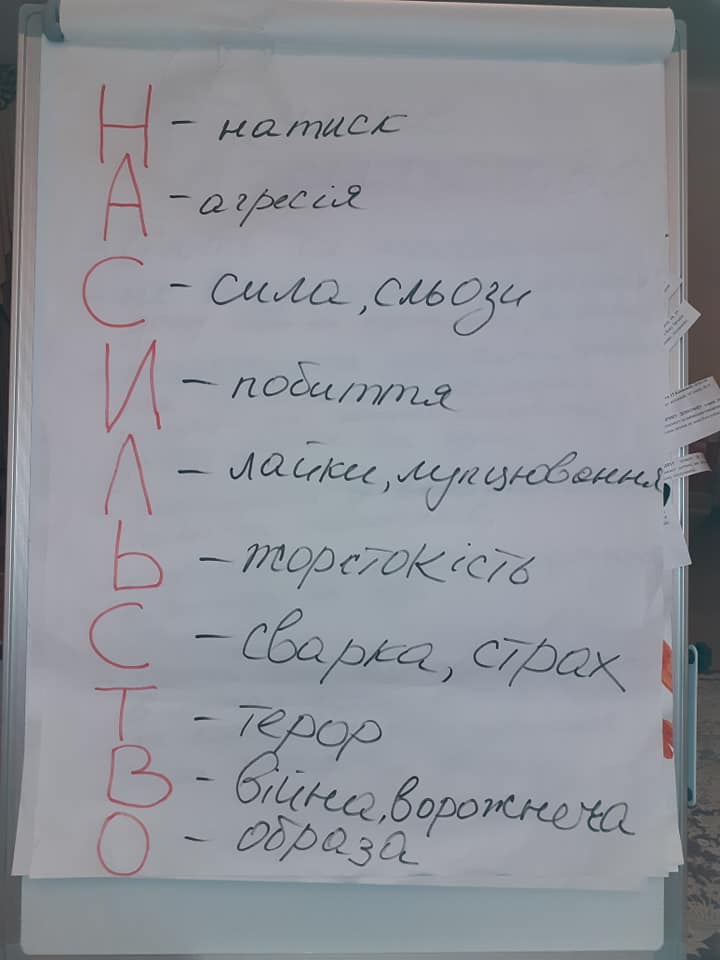 Н - натиск
А - агресія
С - сила, сльози
И - побиття
Л - лайки, лупцювання
Ь - жорстокість
С - сварка, страх
Т - терор
В - війна, ворожнеча
О - образа